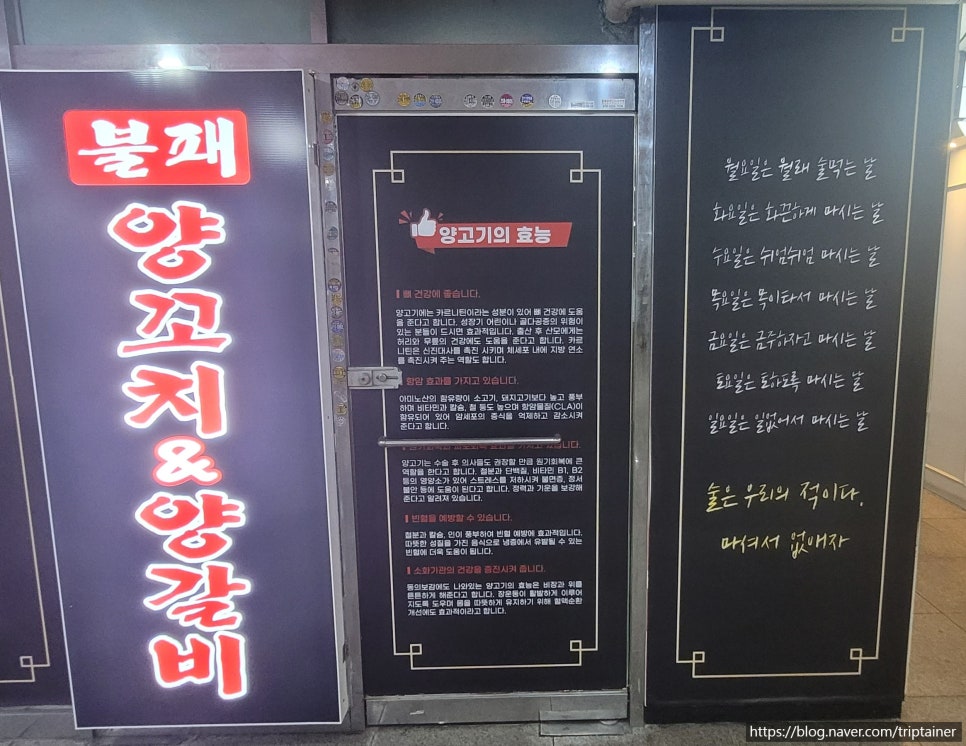 불패
양꼬치&양갈비
양고기의 효능
뼈 건강에 좋습니다.
양고기에는 카르니틴이라는 성분이 있어 뼈 건강에 도움
을 준다고 합니다. 성장기 어린이나 골다공증의 위험이
있는 분들이 드시면 효과적입니다. 출산 후 산모에게는
허리와 무릎의 건강에도 도움을 준다고 합니다. 카르
니틴은 신진대사를 촉진 시키며 체세포 내에 지방 연소
를 촉진시켜 주는 역할도 합니다.
항암 효과를 가지고 있습니다.
아미노산의 함유량이 소고기, 돼지고기보다 높고 풍부
하며 비타민과 칼슘, 철 등도 높으며 항암물질(CLA)이
함유되어 있어 암세포의 증식을 억제하고 감소시켜
준다고 합니다.
양고기는 수술 후 의사들도 권장할 만큼 원기회복에 큰
역할을 한다고 합니다. 철분과 단백질, 비타민 B1, B2
등의 영양소가 있어 스트레스를 저하시켜 불면증, 정서
불안 등에 도움이 된다고 합니다. 정력과 기운을 보강해
준다고 알려져 있습니다.
빈혈을 예방할 수 있습니다.
철분과 칼슘, 인이 풍부하여 빈혈 예방에 효과적입니다.
따뜻한 성질을 가진 음식으로 냉증에서 유발될 수 있는
빈혈에 더욱 도움이 됩니다.
소화기관의 건강을 증진시켜 줍니다.
동의보감에도 나와있는 양고기의 효능은 비장과 위를
튼튼하게 해준다고 합니다. 장운동이 활발하게 이루어
지도록 도우며 몸을 따뜻하게 유지하기 위해 혈액순환
개선에도 효과적이라고 합니다.
월요일은 월래 술먹는 날
화요일은 화끈하게 마시는 날
수요일은 쉬엄쉬엄 마시는 날
목요일은 목이타서 마시는 날
금요일은 금주하자고 마시는 날
토요일은 토하도록 마시는 날
일요일은 일없어서 마시는 날
술은 우리의 적이다.
마셔서 없애자
https://blog.naver.com/triptainer